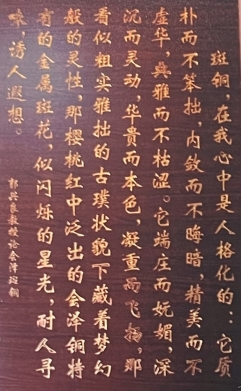 斑铜，在我心中是人格化的：它质
朴而不笨拙，内敛而不晦暗，精美而不
虚华，典雅而不枯涩。它端庄而妩媚，深
沉而灵动，华贵而本色，凝重而飞扬，那
看似粗实雅拙的古璞状貌下藏着梦幻
般的灵性，那樱桃红中泛出的会泽铜特
有的金属斑花，似闪烁的星光，耐人寻
味，诱人遐想。
教授论会泽斑铜